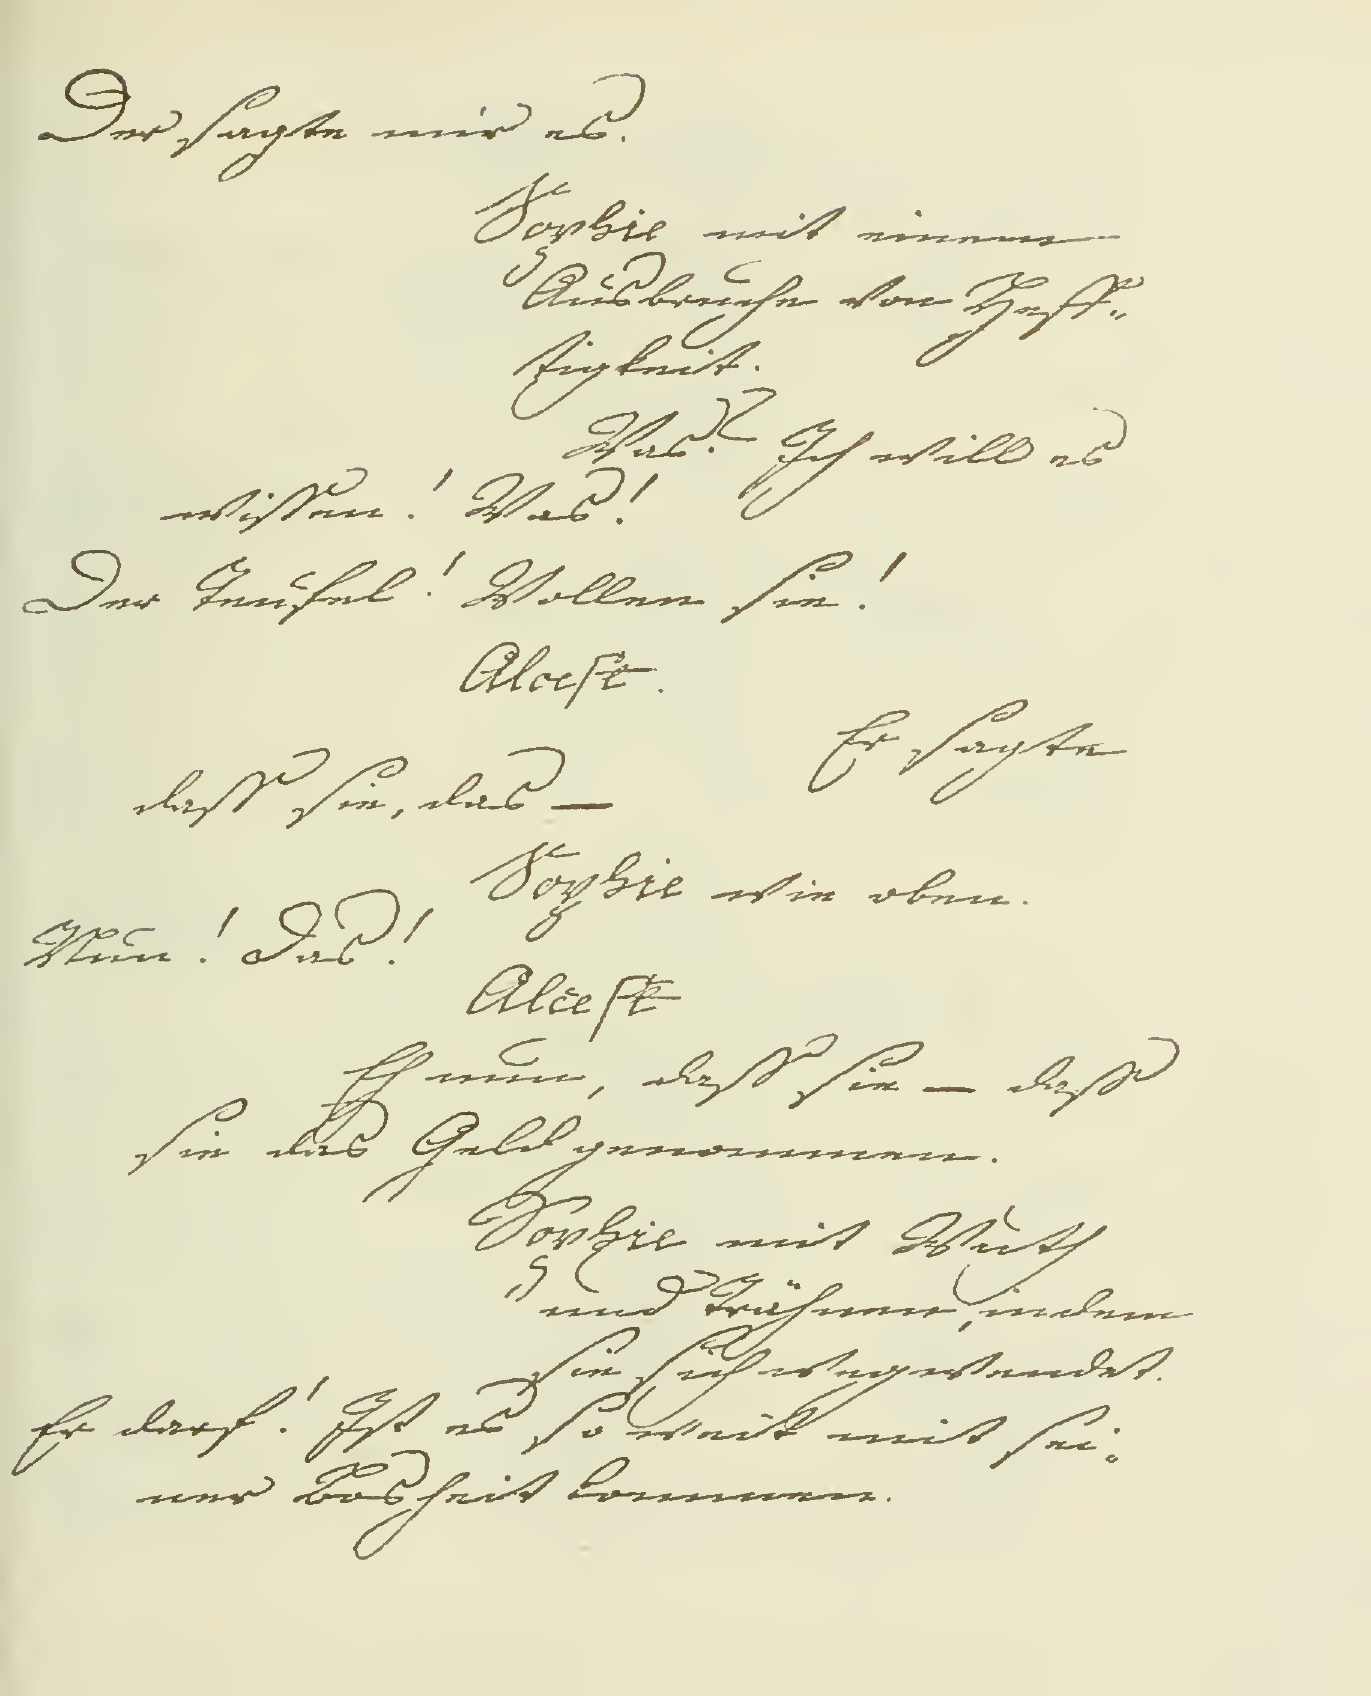 Der sagte mir es.
Sophie mit einem
Ausbruche von Hef-
tigkeit.
Was? Ich will es
wissen! Was!
Der Teufel! Wollen sie!
Alcest.
Er sagte
dass sie, das —
Sophie wie oben.
Nun! Das!
Alcest
Eh nun, dass sie — dass
sie das Geld genommen.
Sophie mit Wuth
und Trähnen, indem
sie sich wegwendet.
Er darf! Ist es so weit mit sei-
ner Bosheit kommen.